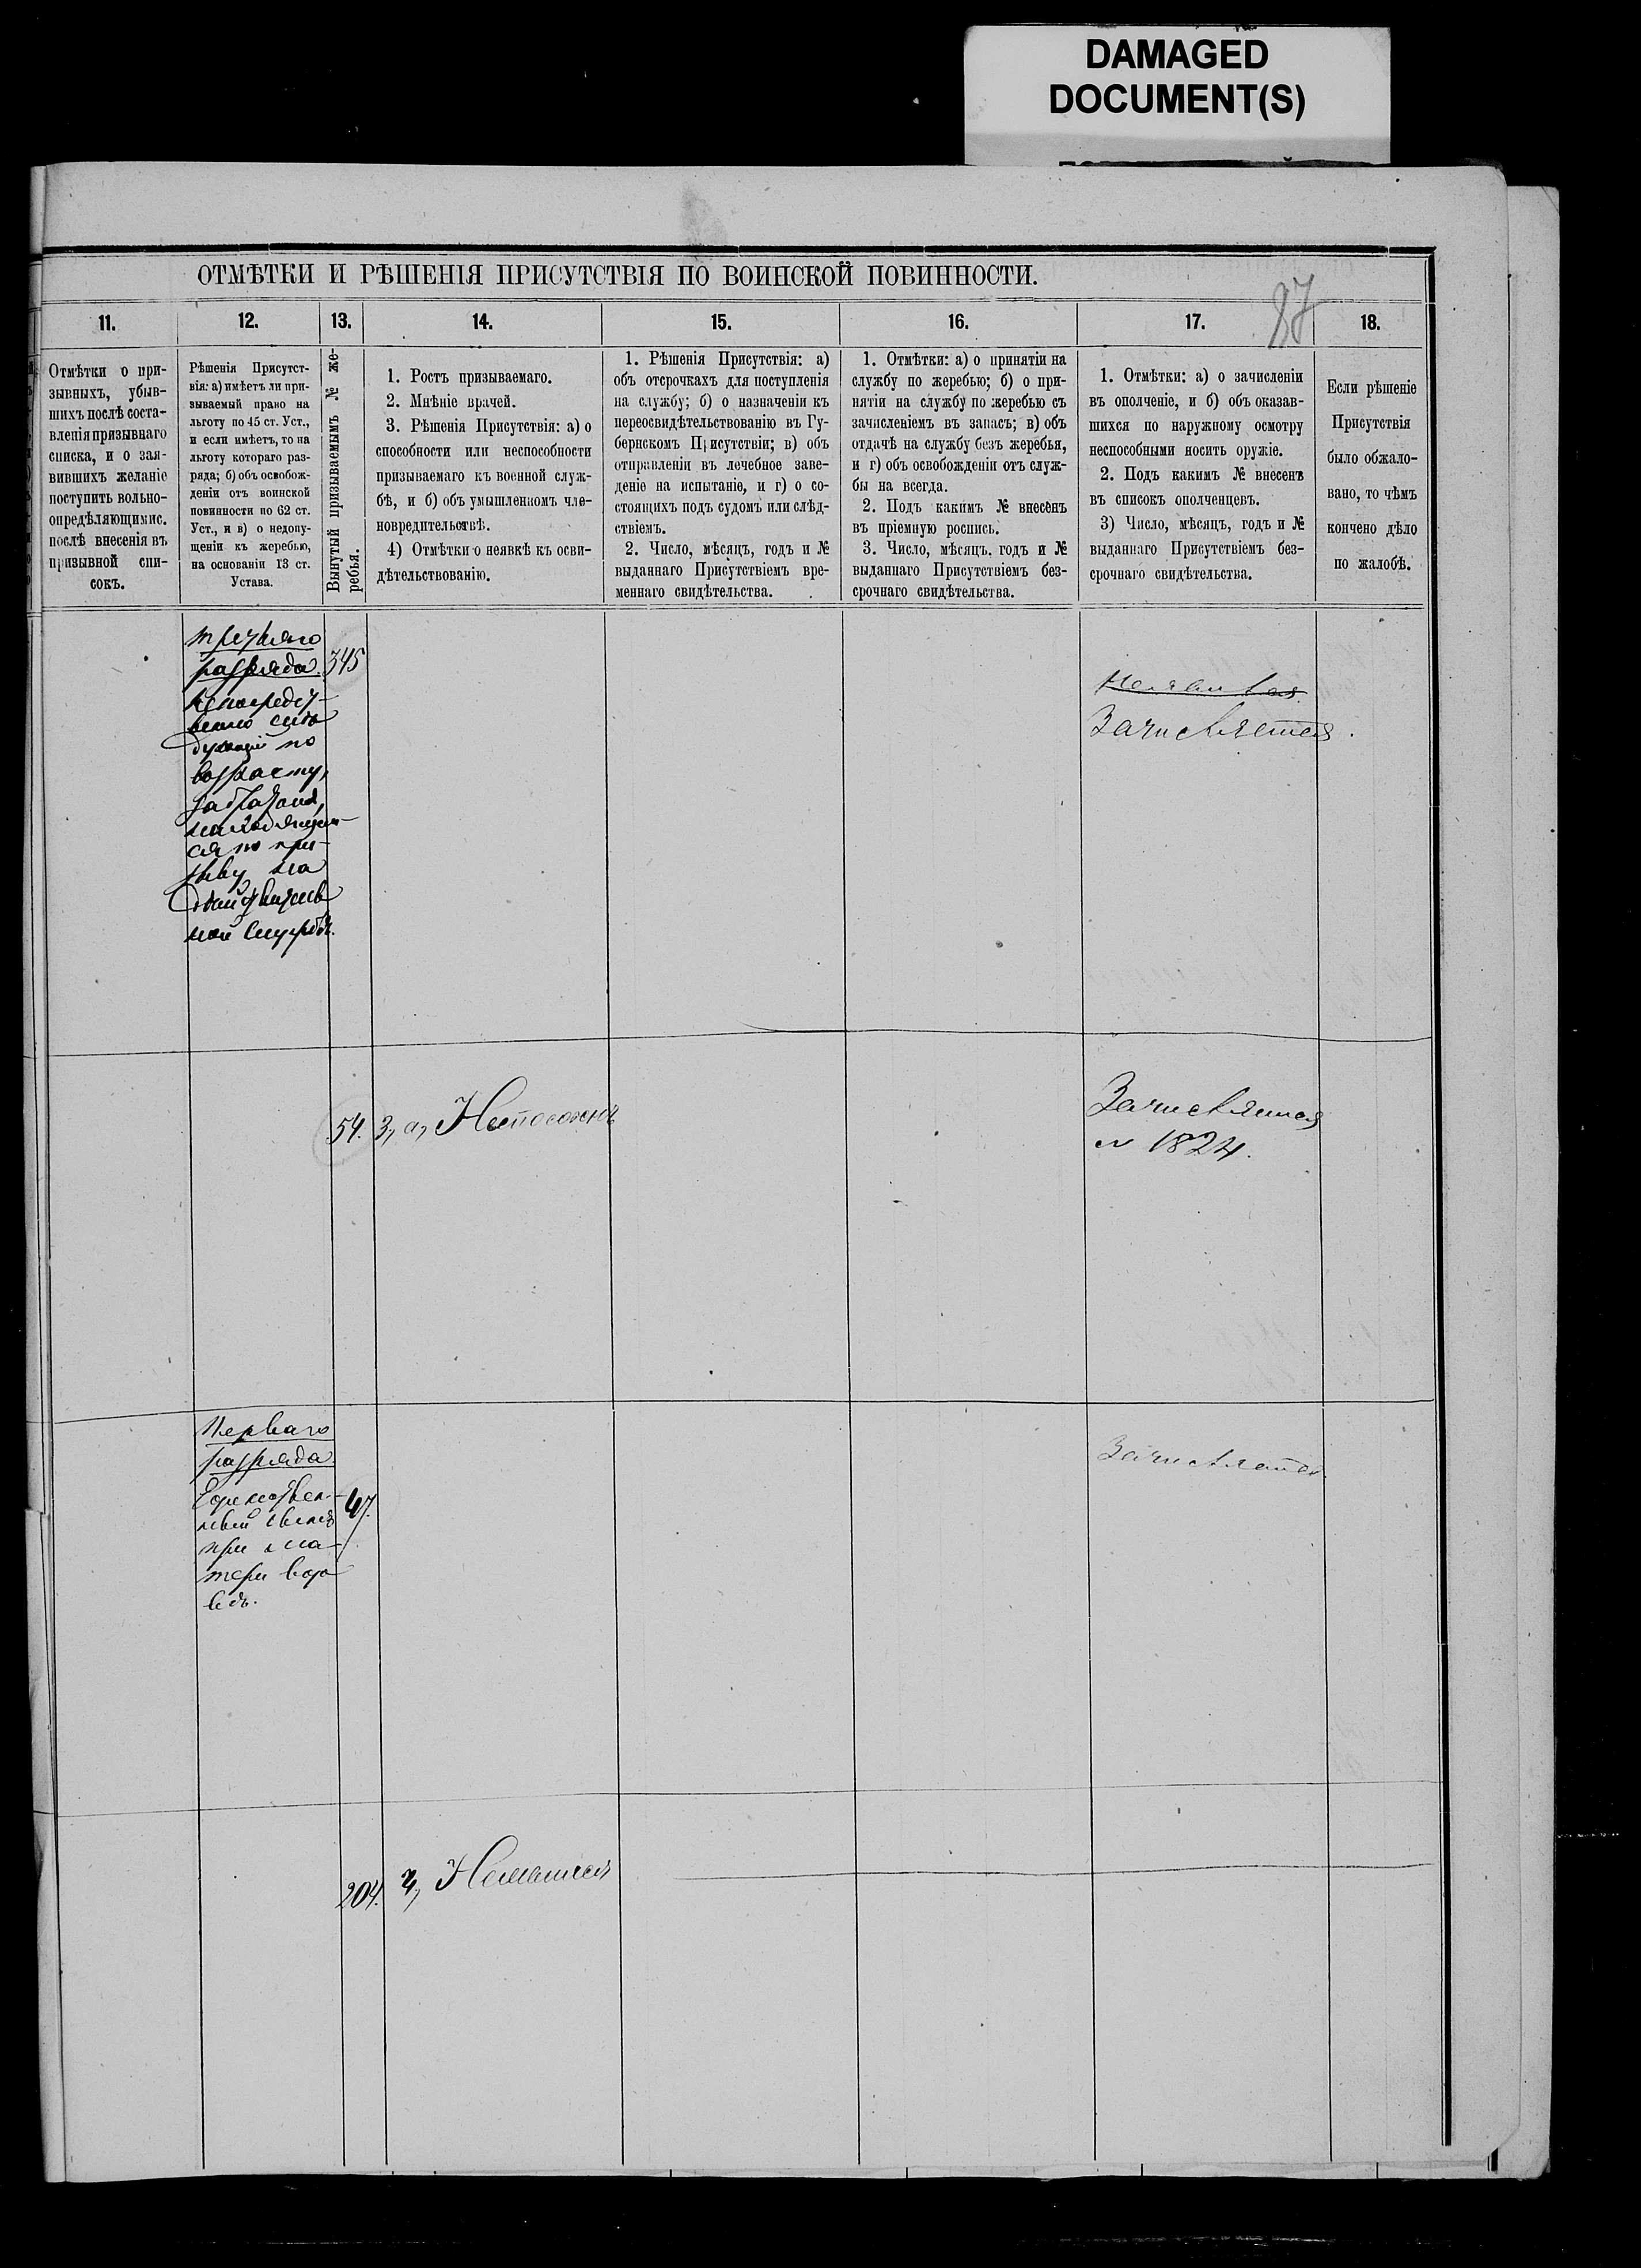 DAMAGED
DOCUMENT(S)
ОТМѢТКИ И РѢШЕНІЯ ПРИСУТСТВІЯ ПО ВОИНСКОЙ ПОВИННОСТИ.
87
11.
12.
13.
14.
15.
16.
17.
18.
Отмѣтки о при-
зывныхъ, убыв-
шихъ послѣ соста-
вленія призывнаго
списка, и о зая-
вившихъ желаніе
поступить вольно-
опредѣляющимис.
послѣ внесенія въ
призывной спи-
сокъ.
Рѣшенія Присутст-
вія: а) имѣетъ ли при-
зываемый право на
льготу по 45 ст. Уст.,
и если имѣетъ, то на
льготу котораго раз-
ряда; б) объ освобож-
деніи отъ воинской
повинности по 62 ст.
Уст., и в) о недопу-
щеніи къ жеребью,
на основаніи 13 ст.
Устава.
Вынутый призываемымъ № же-
ребья.
1. Ростъ призываемаго.
2. Мнѣніе врачей.
3. Рѣшенія Присутствія: а) о
способности или неспособности
призываемаго къ военной служ-
бѣ, и б) объ умышленномъ чле-
новредительствѣ.
4) Отмѣтки о неявкѣ къ осви-
дѣтельствованію.
1. Рѣшенія Присутствія: а)
объ отсрочкахъ для поступленія
на службу; б) о назначеніи къ
переосвидѣтельствованію въ Гу-
бернскомъ Присутствіи; в) объ
отправленіи въ лечебное заве-
деніе на испытаніе, и г) о со-
стоящихъ подъ судомъ или слѣд-
ствіемъ.
2. Число, мѣсяцъ, годъ и №
выданнаго Присутствіемъ вре-
меннаго свидѣтельства.
1. Отмѣтки: а) о принятіи на
службу по жеребью; б) о при-
нятіи на службу по жеребью съ
зачисленіемъ въ запасъ; в) объ
отдачѣ на службу безъ жеребья,
и г) объ освобожденіи отъ служ-
бы на всегда.
2. Подъ какимъ № внесенъ
въ пріемную роспись.
3. Число, мѣсяцъ, годъ и №
выданнаго Присутствіемъ без-
срочнаго свидѣтельства.
1. Отмѣтки: а) о зачисленіи
въ ополченіе, и б) объ оказав-
шихся по наружному осмотру
неспособными носить оружіе.
2. Подъ какимъ № внесенъ
въ списокъ ополченцевъ.
3) Число, мѣсяцъ, годъ и №
выданнаго Присутствіемъ без-
срочнаго свидѣтельства.
Если рѣшеніе
Присутствія
было обжало-
вано, то чѣмъ
кончено дѣло
по жалобѣ.
третьяго
разряда
непосредст-
венно слѣ
дующій по
возрасту,
за братомъ,
находящим-
ся по при-
зыву на
дѣйствитель
ной службѣ.
345
Зачисляется.
54.
3, а, Неспособенъ
Зачисляется
№ 1824.
Перваго
разряда
Единствен-
ный сынъ
при ма-
тери вдо
вѣ.
47.
Зачисляется
204.
4, Неявился